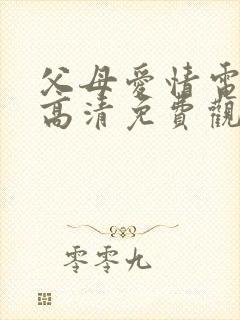 父母愛情電
高清免費觀
零零九